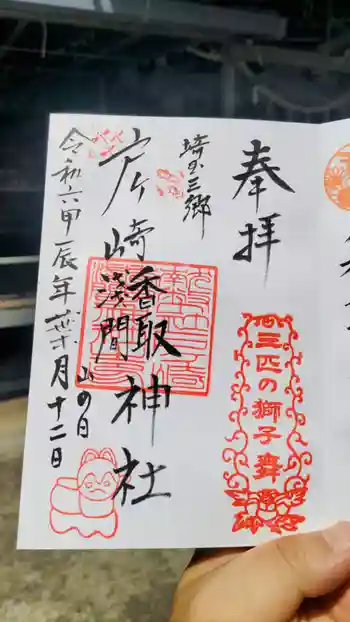 奉拝
三匹の獅子舞
埼玉三郷
戸ヶ崎
香取
浅間
神社
令和六甲辰年葉月十二日
山の日